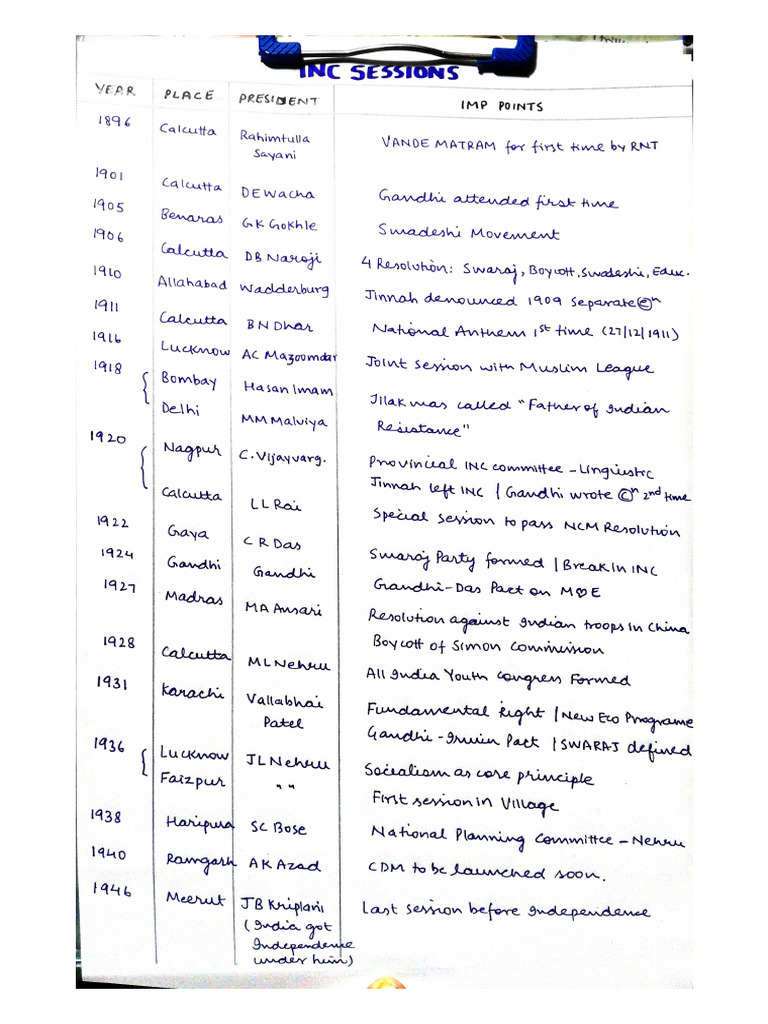 INC SESSIONS
YEAR PLACE PRESIDENT IMP POINTS
1896 Calcutta Rahimtulla Sayani VANDE MATRAM for first time by RNT
1901 Calcutta DEWacha Gandhi attended first time
1905 Benaras GK Gokhle Swadeshi Movement
1906 Calcutta DB Naroji 4 Resolution: Swaraj, Boycott, Swadeshi, Educ.
1910 Allahabad Wadderburg Jinnah denounced 1909 separate ©n
1911 Calcutta BN Dhar National Anthem 1st time (27/12/1911)
1916 Lucknow AC Mazoomdar Joint Session with Muslim League
1918 { Bombay Hasan Imam Tilak was called "Father of Indian
Delhi MM Malviya Resistance"
1920 { Nagpur C. Vijayvarg. Provincial INC committee - Linguistic
Jinnah left INC | Gandhi wrote ©n 2nd time
Calcutta LL Rai Special session to pass NCM Resolution
1922 Gaya CR Das Swaraj Party formed | Break in INC
1924 Gandhi Gandhi Gandhi-Das Pact on
1927 Madras MA Ansari Resolution against Indian troops in China
Boycott of Simon Commission
1928 Calcutta ML Nehru All India Youth Congress Formed
1931 Karachi Vallabhai Fundamental Right | New Eco Programe
Patel Gandhi-Irwin Pact | SWARAJ defined
1936 { Lucknow JL Nehru Socialism as core principle
Faizpur " " First session in Village
1938 Haripura SC Bose National Planning Committee - Nehru
1940 Ramgarh AK Azad CDM to be launched soon.
1946 Meerut JB Kriplani Last session before Independence
(India got
Independence
under him)